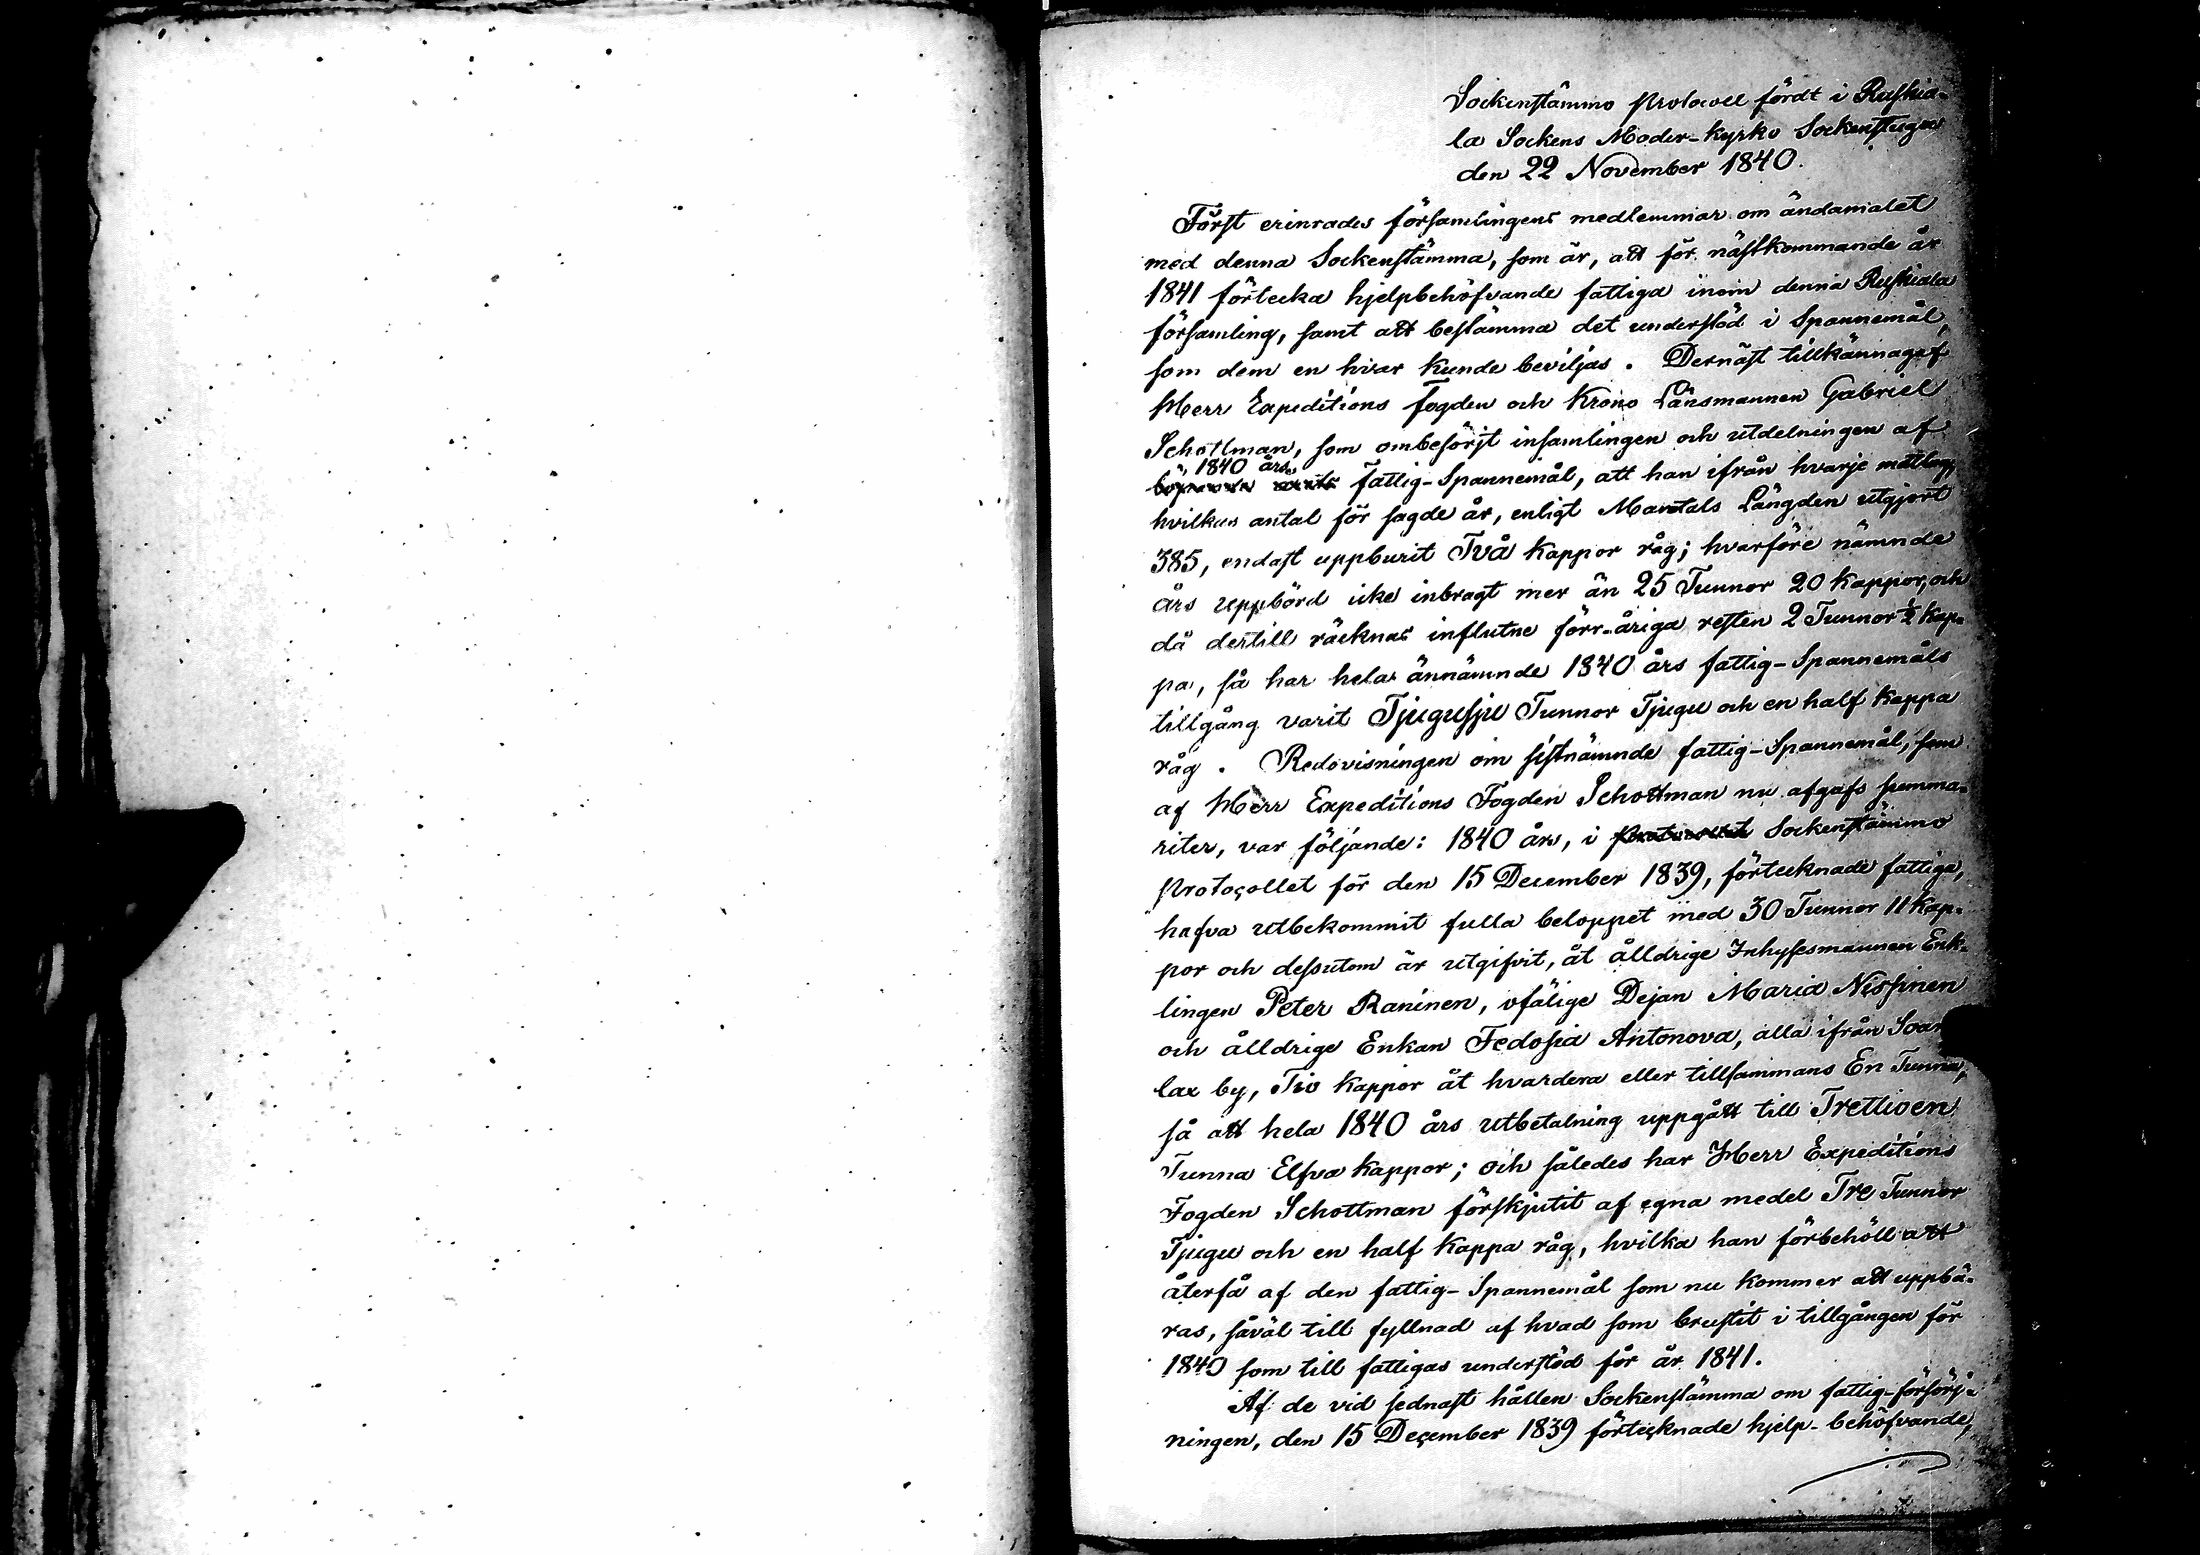 Sockenstämmo protocoll fördt i Ruskia-
la Sockens Moder-kyrko Sockenstuga
den 22 November 1840.
Först erinrades församlingens medlemmar om ändamalet
med denna Sockenstämma, som är, att för nästkommande år
1841 förtecka hjelpbehöfvande fattiga inom denna Ruskiala
församling, samt att bestämma det understöd i Spannemål,
som dem en hvar kunde beviljas. Dernäst tillkännagaf
Herr Expeditions Fogden och Krono Länsmannen Gabriel
Schottman, som ombesörjt insamlingen och utdelningen af
1840 års
fattig-Spannemål, att han ifrån hvarje matlag,
hvilkas antal för sagde år, enligt Mantals Längden utgjort
385, endast uppburit Två kappor råg; hvarföre nämnde
års uppbörd icke inbragt mer än 25 Tunnor 20 kappor, och
då dertill räcknas influtne förr-åriga resten 2 Tunnor ½ kap-
pa, så har hela ännämnde 1840 års fattig-Spannemåls
tillgång varit Tjugusju Tunnor Tjugu och en half kappa
råg. Redovisningen om sistnämnde fattig-Spannemål, som
af Herr Expeditions Fogden Schottman nu afgafs summa-
riter, var följande: 1840 års, i Sockenstämmo
protocollet för den 15 December 1839, förtecknade fattiga,
hafva utbekommit fulla beloppet med 30 Tunnor 11 kap-
por och dessutom är utgifvit, åt ålldrige Inhysesmannen Enk-
lingen Peter Raninen, ofälige Dejan Maria Nissinen
och ålldrige Enkan Fedosia Antonova, alla ifrån Soan
lax by, Tio kappor åt hvardera eller tillsammans En Tunna,
så att hela 1840 års utbetalning uppgått till Trettioen
Tunna Elfva kappor; och således har Herr Expeditions
Fogden Schottman förskjutit af egna medel Tre Tunnor
Tjugu och en half kappa råg, hvilka han förbehöll att
återfå af den fattig-Spannemål som nu kommer att uppbä-
ras, såväl till fyllnad af hvad som brustit i tillgången för
1840 som till fattigas understöd för år 1841.
Af de vid sednast hållen Sockenstämma om fattig-försörj-
ningen, den 15 December 1839 förtecknade hjelp-behöfvande,